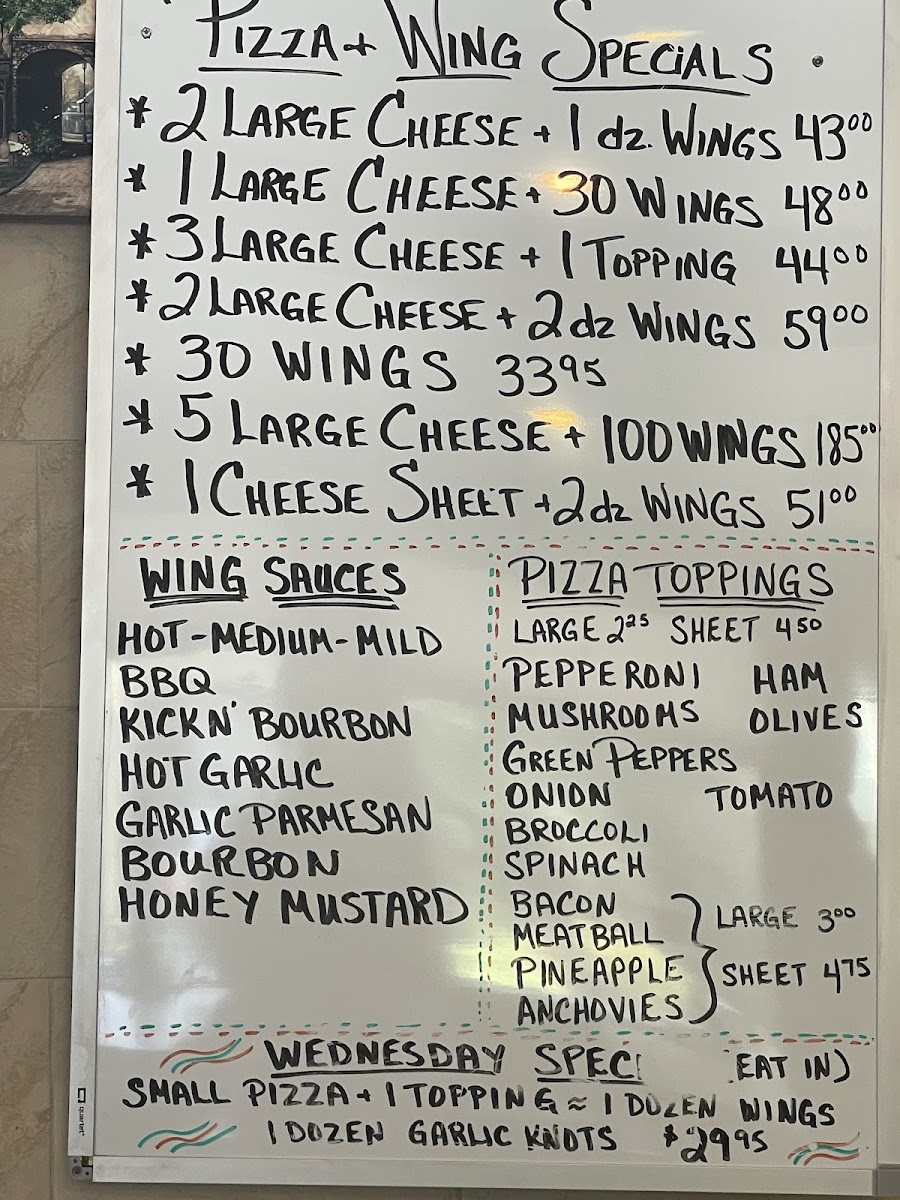 PIZZA + WING SPECIALS
* 2 LARGE CHEESE + 1 dz. WINGS 43⁰⁰
* 1 LARGE CHEESE + 30 WINGS 48⁰⁰
* 3 LARGE CHEESE + 1 TOPPING 44⁰⁰
* 2 LARGE CHEESE + 2 dz WINGS 59⁰⁰
* 30 WINGS 33⁹⁵
* 5 LARGE CHEESE + 100 WINGS 185⁰⁰
* 1 CHEESE SHEET + 2 dz WINGS 51⁰⁰
WING SAUCES
HOT - MEDIUM - MILD
BBQ
KICKN' BOURBON
HOT GARLIC
GARLIC PARMESAN
BOURBON
HONEY MUSTARD
PIZZA TOPPINGS
LARGE 2²⁵ SHEET 4⁵⁰
PEPPERONI HAM
MUSHROOMS OLIVES
GREEN PEPPERS
ONION TOMATO
BROCCOLI
SPINACH
BACON
MEATBALL
PINEAPPLE
ANCHOVIES
LARGE 3⁰⁰
SHEET 4⁷⁵
WEDNESDAY SPECI EAT IN)
SMALL PIZZA + 1 TOPPING ≈ 1 DOZEN WINGS
1 DOZEN GARLIC KNOTS $29⁹⁵
quartet